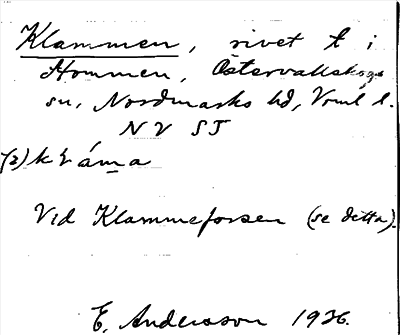 Klammen, rivet t i
Hommen, Östervallskogs
sn, Nordmarks hd, Vrml l.
NV ST
(2) k
Vid Klammeforsen (se detta).
E. Andersson 1926.